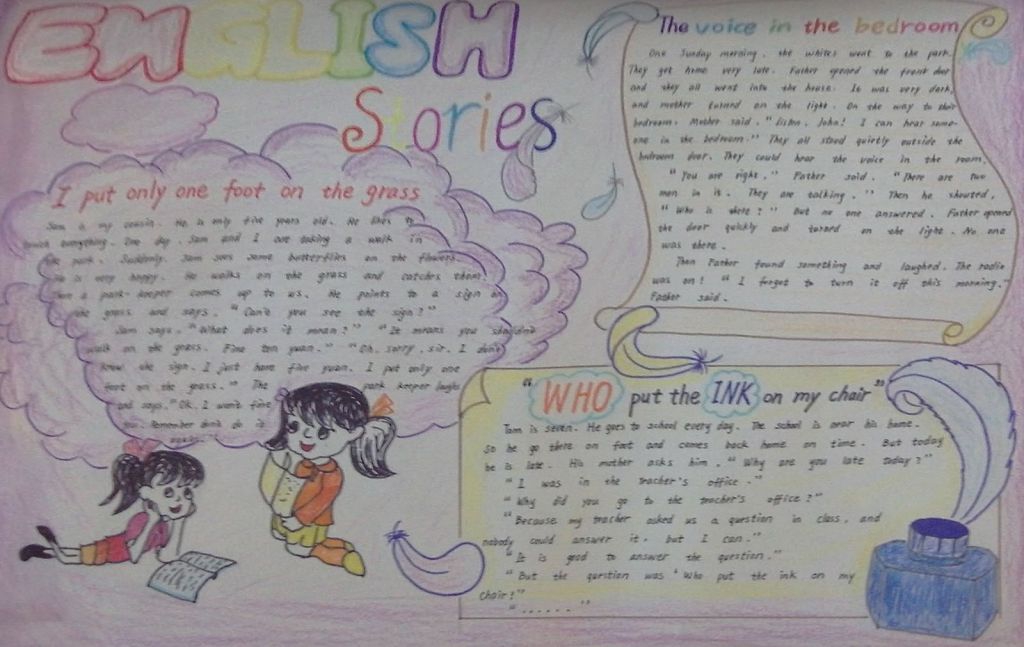 ENGLISH
Stories
I put only one foot on the grass
Sam is my cousin. He is only five years old. He likes to
touch everything. One day. Sam and I are taking a walk in
the park. Suddenly. Sam sees some butterflies on the flowers.
He is very happy. He walks on the grass and catches them.
a park keeper comes up to us. He points to a sign on
the grass and says. "Can't you see the sign?"
Sam says. "What does it mean?" "It means you shouldn't
walk on the grass. Fine ten yuan." "Oh. sorry. sir. I don't
know the sign. I just have five yuan. I put only one
foot on the grass." The park keeper laughs
and says. "OK. I won't fine
you. Remember don't do it
again."
The voice in the bedroom
One Sunday morning. the whites went to the park.
They got home very late. Father opened the front door
and they all went into the house. It was very dark,
and mother turned on the light. On the way to their
bedroom. Mother said. "listen. John! I can hear some-
one in the bedroom." They all stood quietly outside the
bedroom door. They could hear the voice in the room.
"You are right." Father said. "There are two
men in it. They are talking." Then he shouted.
"Who is there?" But no one answered. Father opened
the door quickly and turned on the light. No one
was there.
Then Father found something and laughed. The radio
was on! "I forgot to turn it off this morning."
Father said.
"WHO put the INK on my chair"
Tom is seven. He goes to school every day. The school is near his home.
So he go there on foot and comes back home on time. But today
he is late. His mother asks him. "Why are you late today?"
"I was in the teacher's office."
"Why did you go to the teacher's office?"
"Because my teacher asked us a question in class. and
nobody could answer it. but I can."
"It is good to answer the question."
"But the question was 'Who put the ink on my
chair?"
"......"